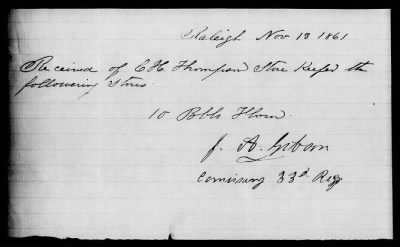 Raleigh Nov 13 1861
Received of C. H. Thompson Store Keeper the
following Stores
10 Bbls Flour
J. A. Gibson
Comissary 33d Reg